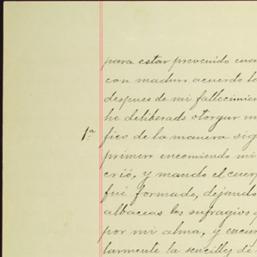 para estar prevenido cuan
con maduro acuerdo lo
despues de mi fallecimien
he deliberado otorgar mi
1ª fico de la manera sig
primero encomiendo mi
crió, y mando el cuerp
fué formado, dejando
albaceas los sufragios y
por mi alma, y encar
larmente la sencillez de